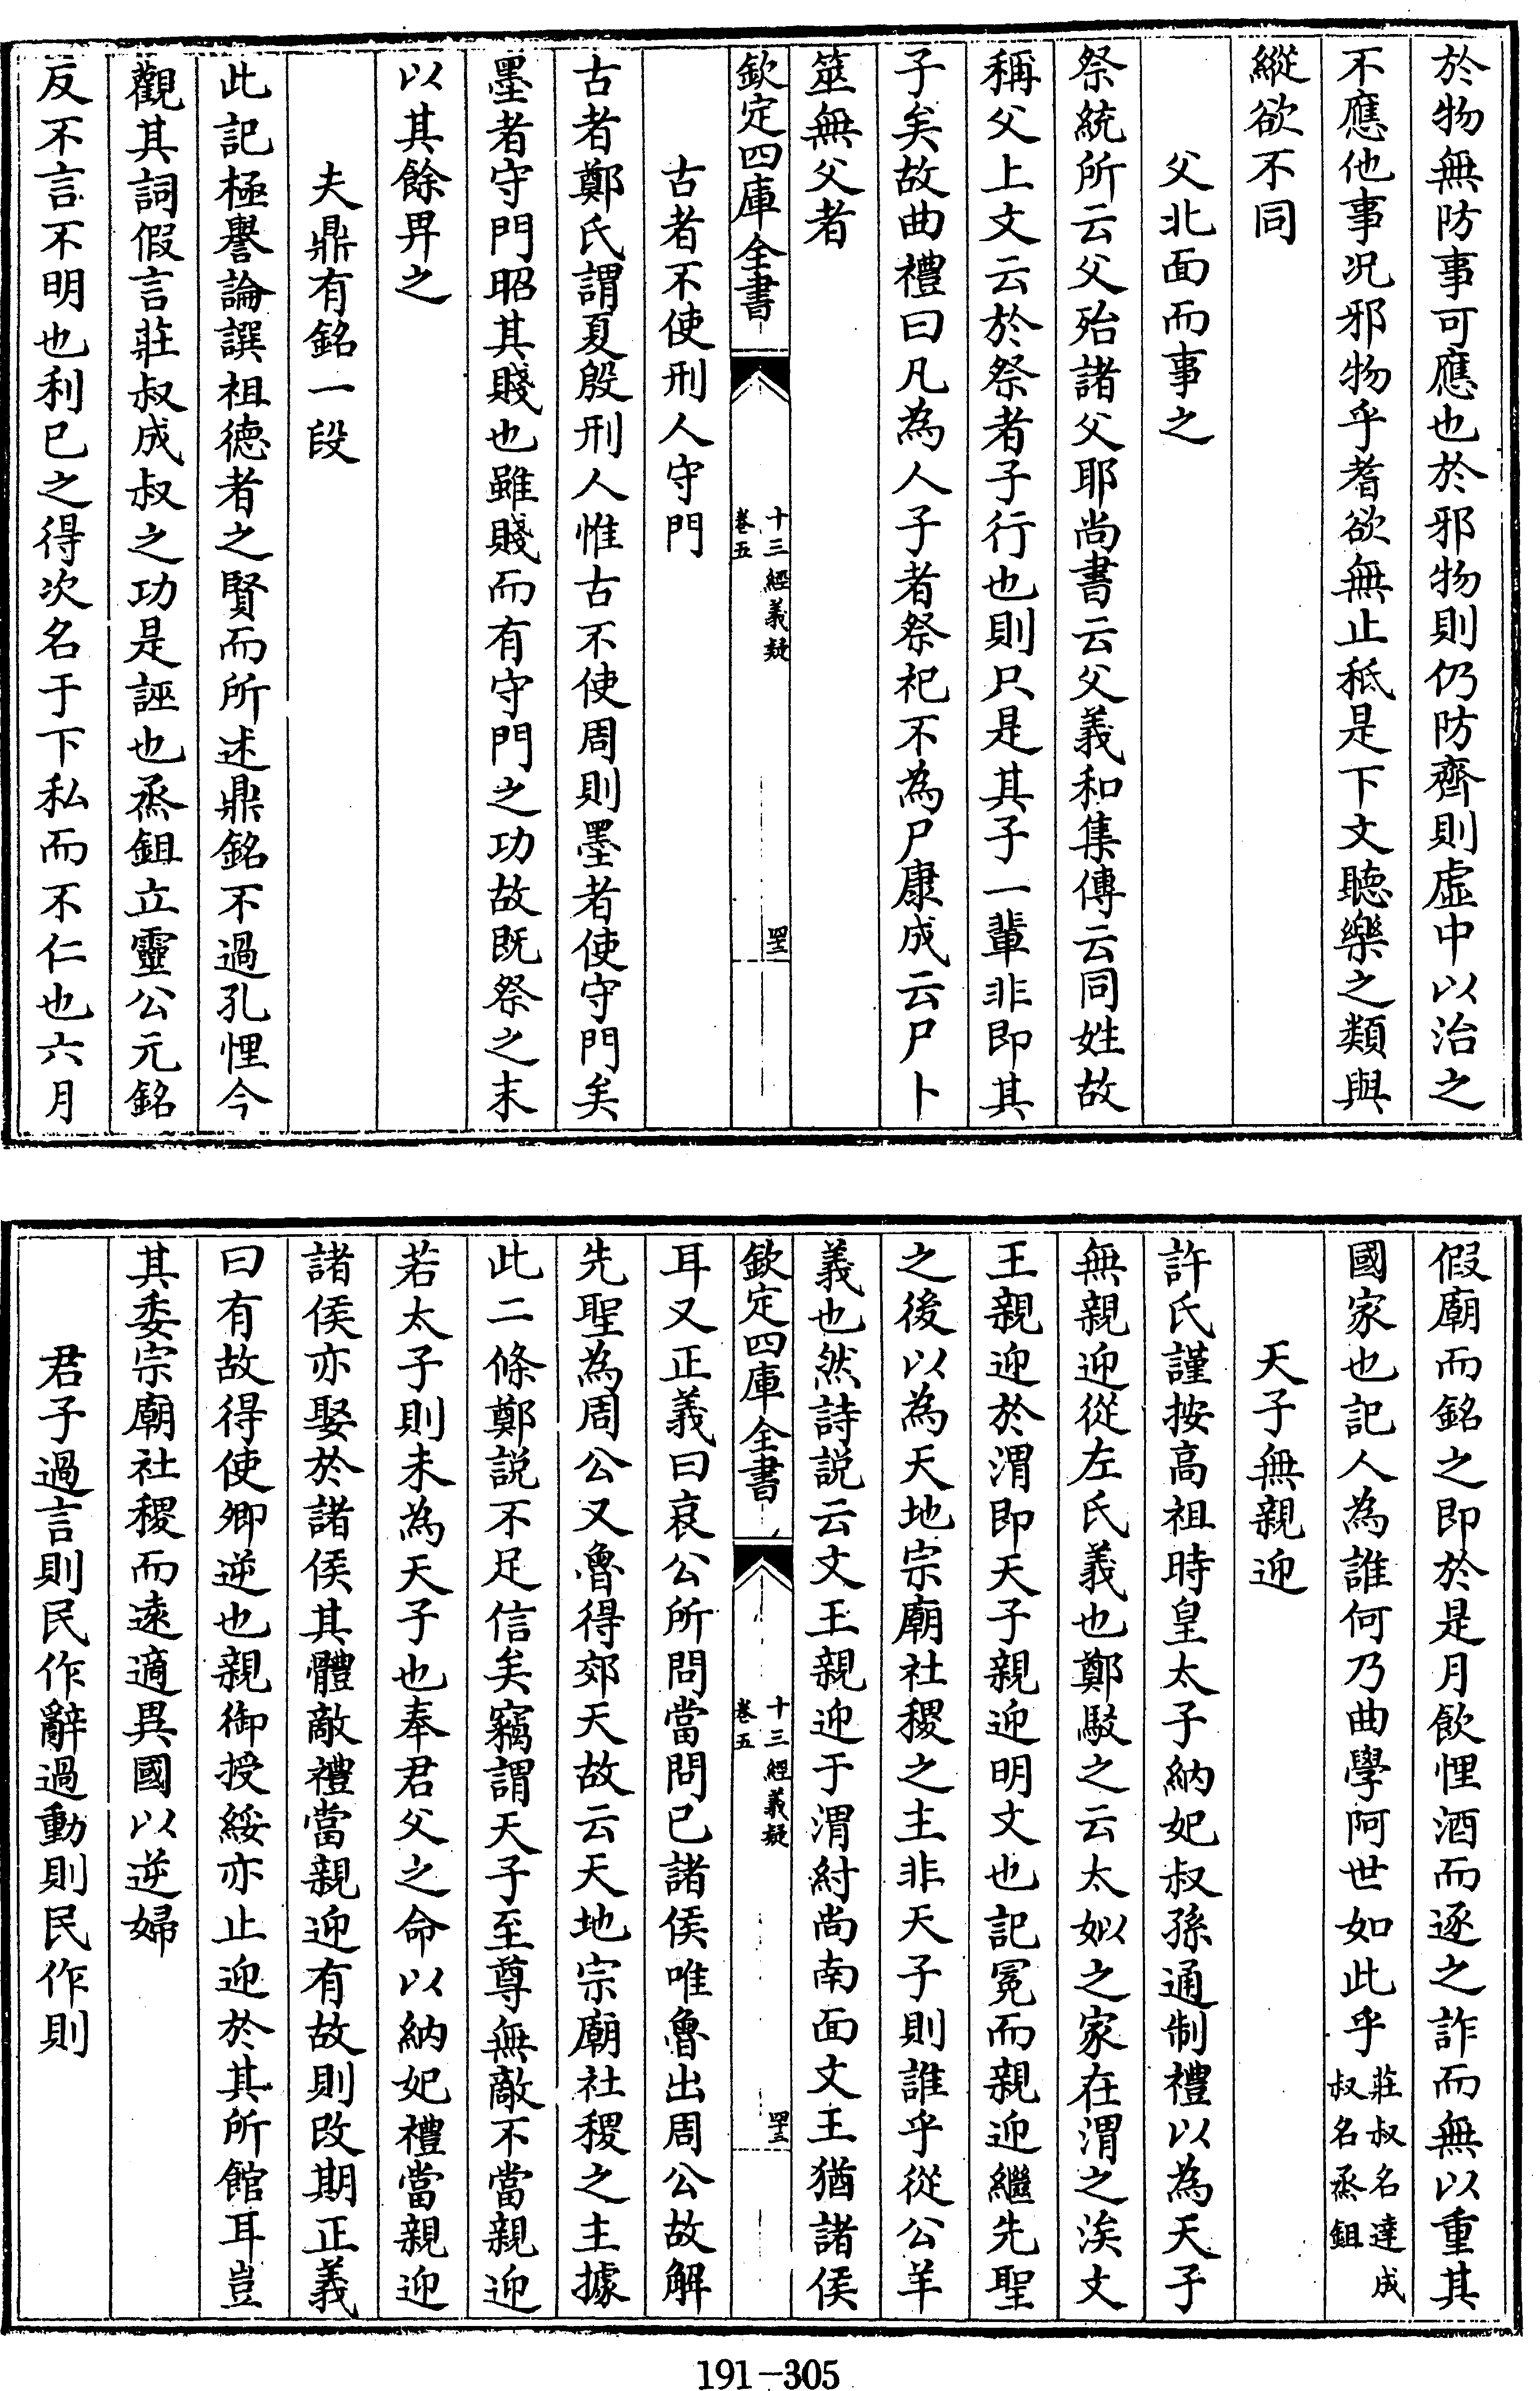 於物無防事可應也於邪物則仍防齊則虛中以治之
不應他事况邪物乎耆欲無止秪是下文聽樂之類與
縱欲不同
父北面而事之
祭統所云父殆諸父耶尚書云父義和集傳云同姓故
稱父上文云於祭者子行也則只是其子一輩非即其
子矣故曲禮曰凡為人子者祭祀不為尸康成云尸卜
筮無父者
欽定四庫全書
十三經義疑
卷五
四十二
古者不使刑人守門
古者鄭氏謂夏殷刑人惟古不使周則墨者使守門矣
墨者守門昭其賤也雖賤而有守門之功故既祭之末
以其餘畀之
夫鼎有銘一段
此記極譽論譔祖徳者之賢而所述鼎銘不過孔悝今
觀其詞假言莊叔成叔之功是誣也烝鉏立靈公元銘
反不言不明也利已之得次名于下私而不仁也六月
假廟而銘之即於是月飲悝酒而逐之詐而無以重其
國家也記人為誰何乃曲學阿世如此乎莊叔名達成
叔名烝鉏
天子無親迎
許氏謹按高祖時皇太子納妃叔孫通制禮以為天子
無親迎從左氏義也鄭駁之云太姒之家在渭之涘文
王親迎於渭即天子親迎明文也記冕而親迎繼先聖
之後以為天地宗廟社稷之主非天子則誰乎從公羊
義也然詩説云文王親迎于渭紂尚南面文王猶諸侯
欽定四庫全書
十三經義疑
卷五
四十三
耳又正義曰哀公所問當問已諸侯唯魯出周公故解
先聖為周公又魯得郊天故云天地宗廟社稷之主據
此二條鄭説不足信矣竊謂天子至尊無敵不當親迎
若太子則未為天子也奉君父之命以納妃禮當親迎
諸侯亦娶於諸侯其體敵禮當親迎有故則改期正義
曰有故得使卿逆也親御授綏亦止迎於其所館耳豈
其委宗廟社稷而遠適異國以逆婦
君子過言則民作辭過動則民作則
191-305